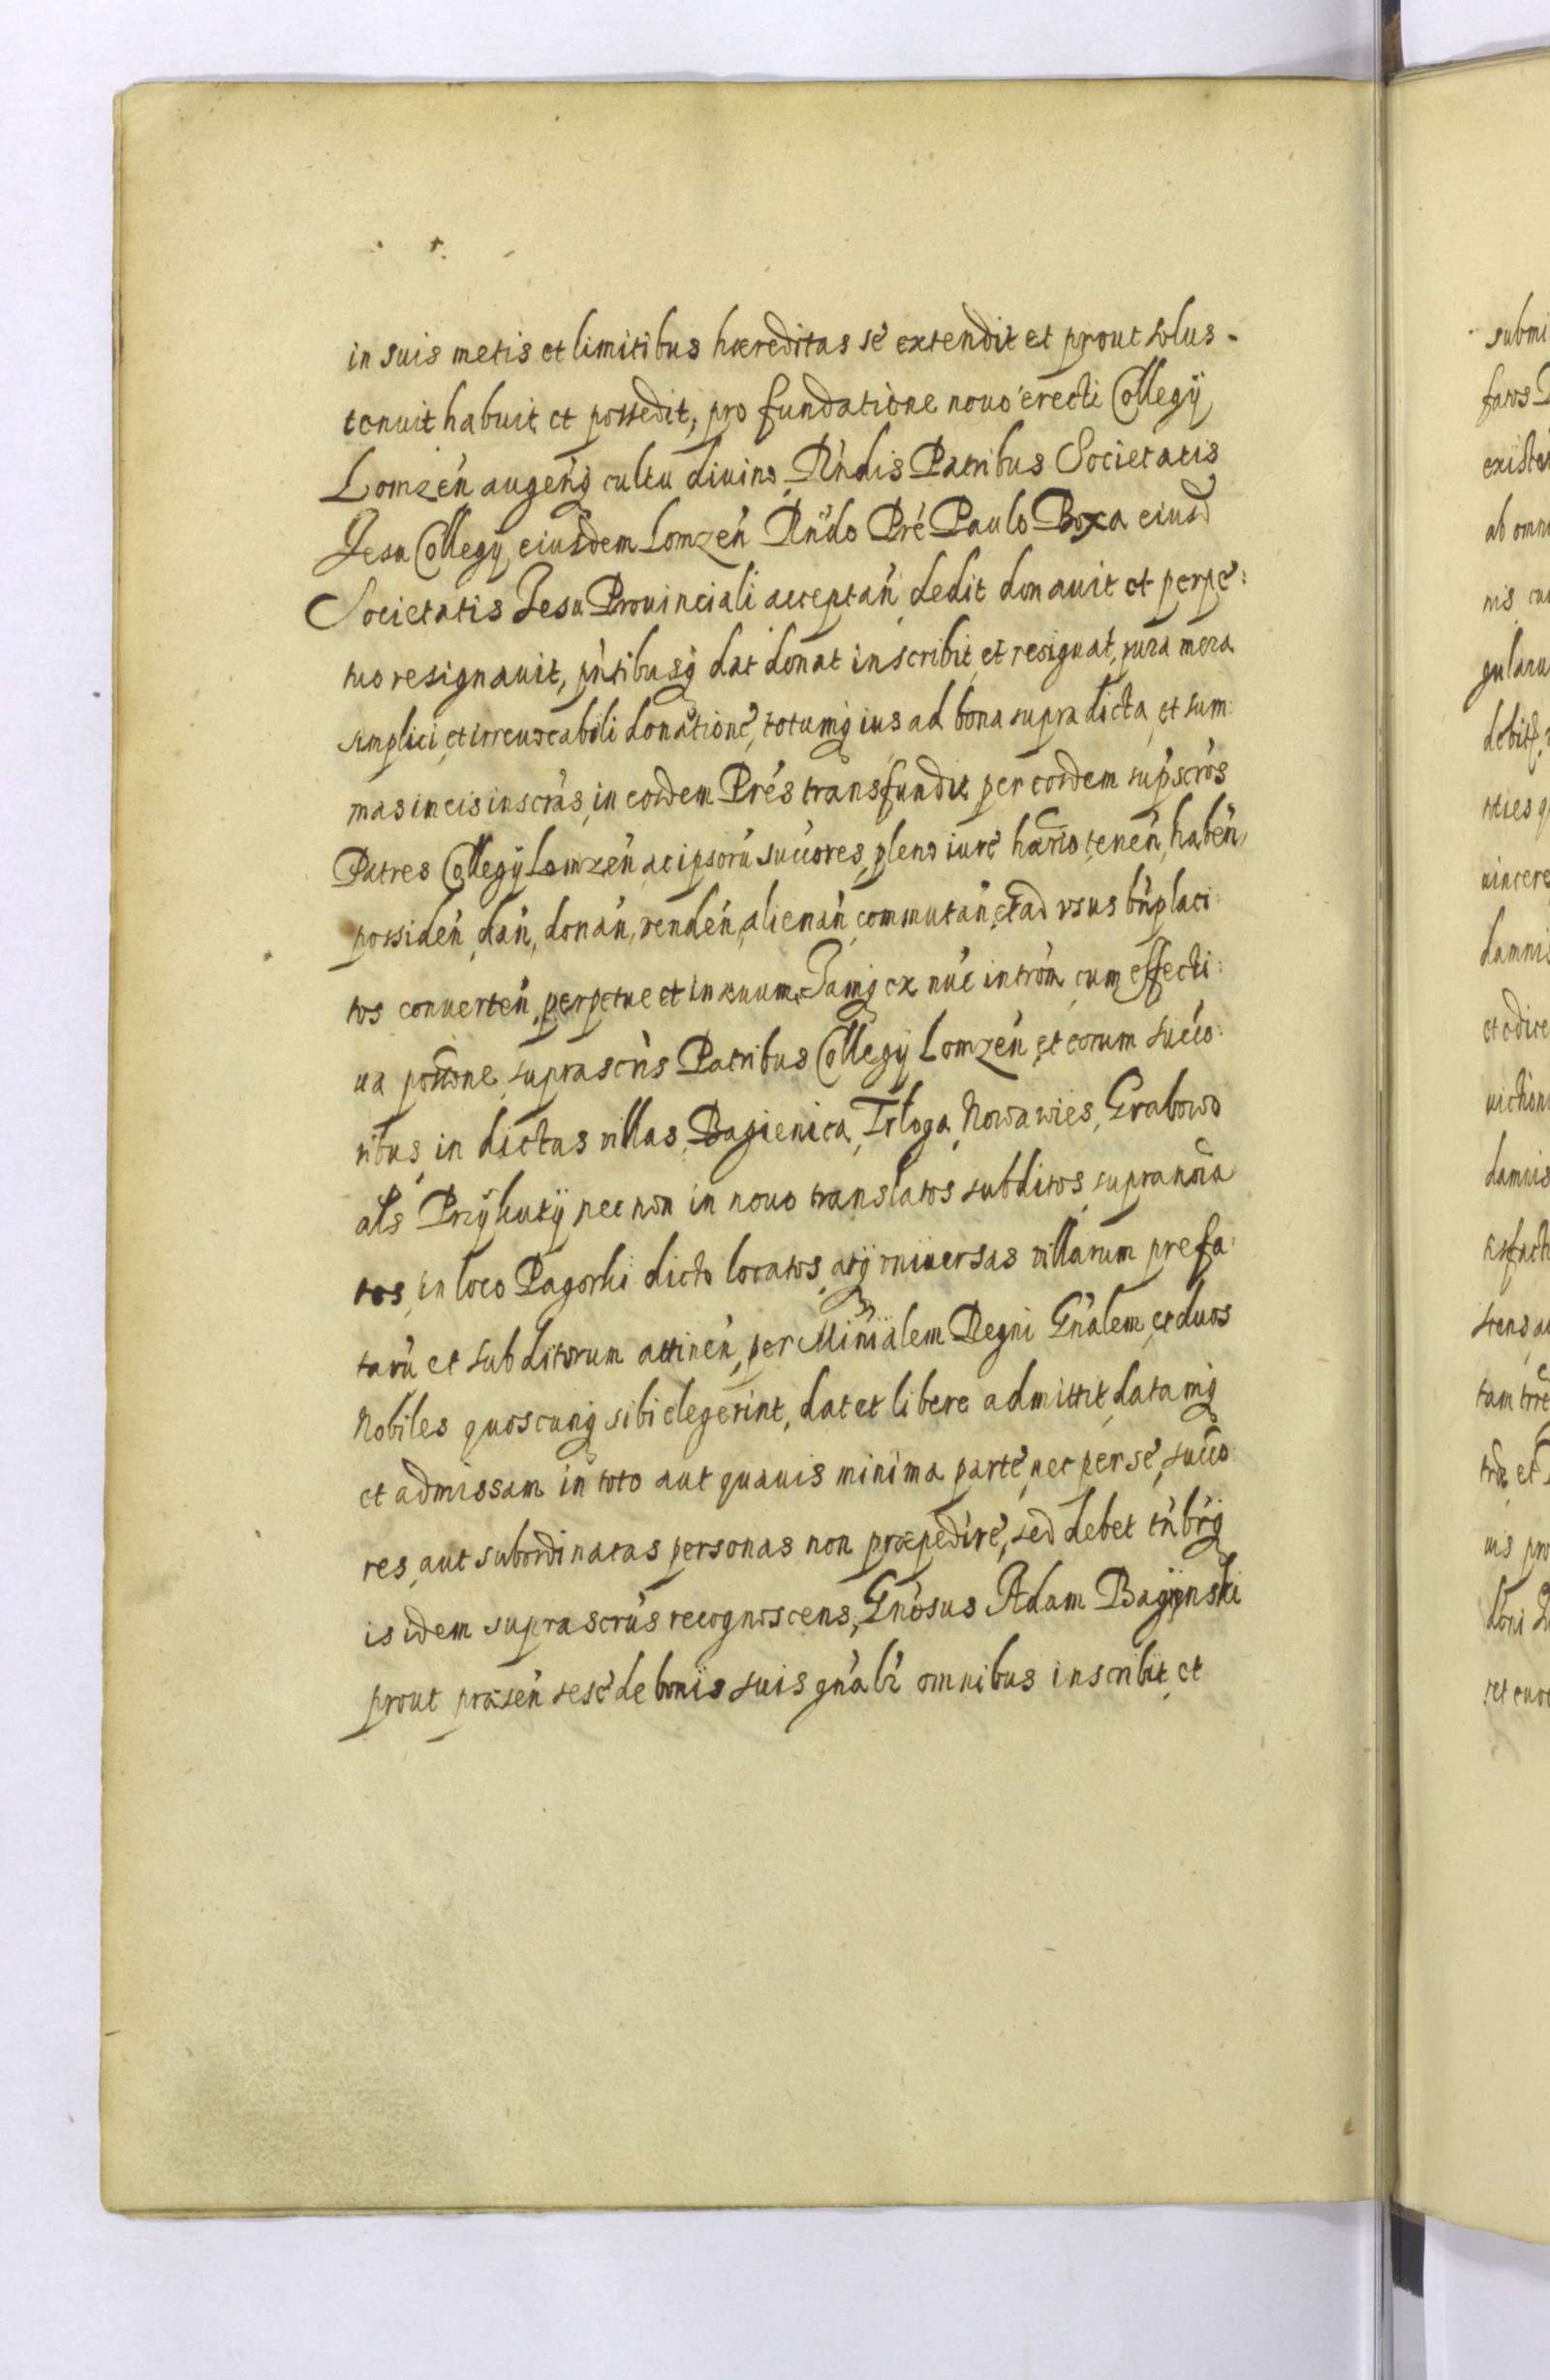 in suis metis et limitibus hæreditas se extendit et prout solus
tenuit habuit et possedit, pro fundatione nouo erecti Collegÿ
Lomzeń augeńq cultu diuino Rńdis Patribus Societatis
Jesu Collegÿ eiusdem Lomzeń Rńdo Pré Paulo Boxa eiusd
Societatis Jesu Prouinciali acceptań dedit donauit et perpe:
tuo resignauit, pńtibusq dat donat inscribit et resignat, pura mera
simplici et irreuocabili donatione, totumq ius ad bona supra dicta et sum:
mas in eis inscras, in eosdem Prés transfundit per eosdem supscros
Patres Collegÿ Lomzeń ac ipsorú succores pleno iure hærio teneń, habeń,
possideń, dań, donań, vendeń, alienań commutań et ad vsus bńplaci:
tos conuerteń, perpetue et in æuum, Jamq ex nuc introm cum effecti:
ua possone suprascris Patribus Collegÿ Lomzeń et eorum succo:
ribus in dictas villas Bagienica, Trloga, Nowawies, Grabowo
als Przÿkutÿ nec non in nouo translatos subditos supranoia
tos, in loco Pagorki dicto locatos, atq vniuersas villarum prefa:
tarú et subditorum attineń, per Minialem Regni Gńalem et duos
Nobiles quoscunq sibi elegerint, dat et libere admittit, datamq
et admissam in toto aut quauis minima parte, nec per se, succo:
res aut subordinatas personas non præpedire, sed debet tńbrq
is idem suprascrus recognoscens, Gńosus Adam Bagÿnski
prout præseń sese de bonis suis gńalr omnibus inscribit et